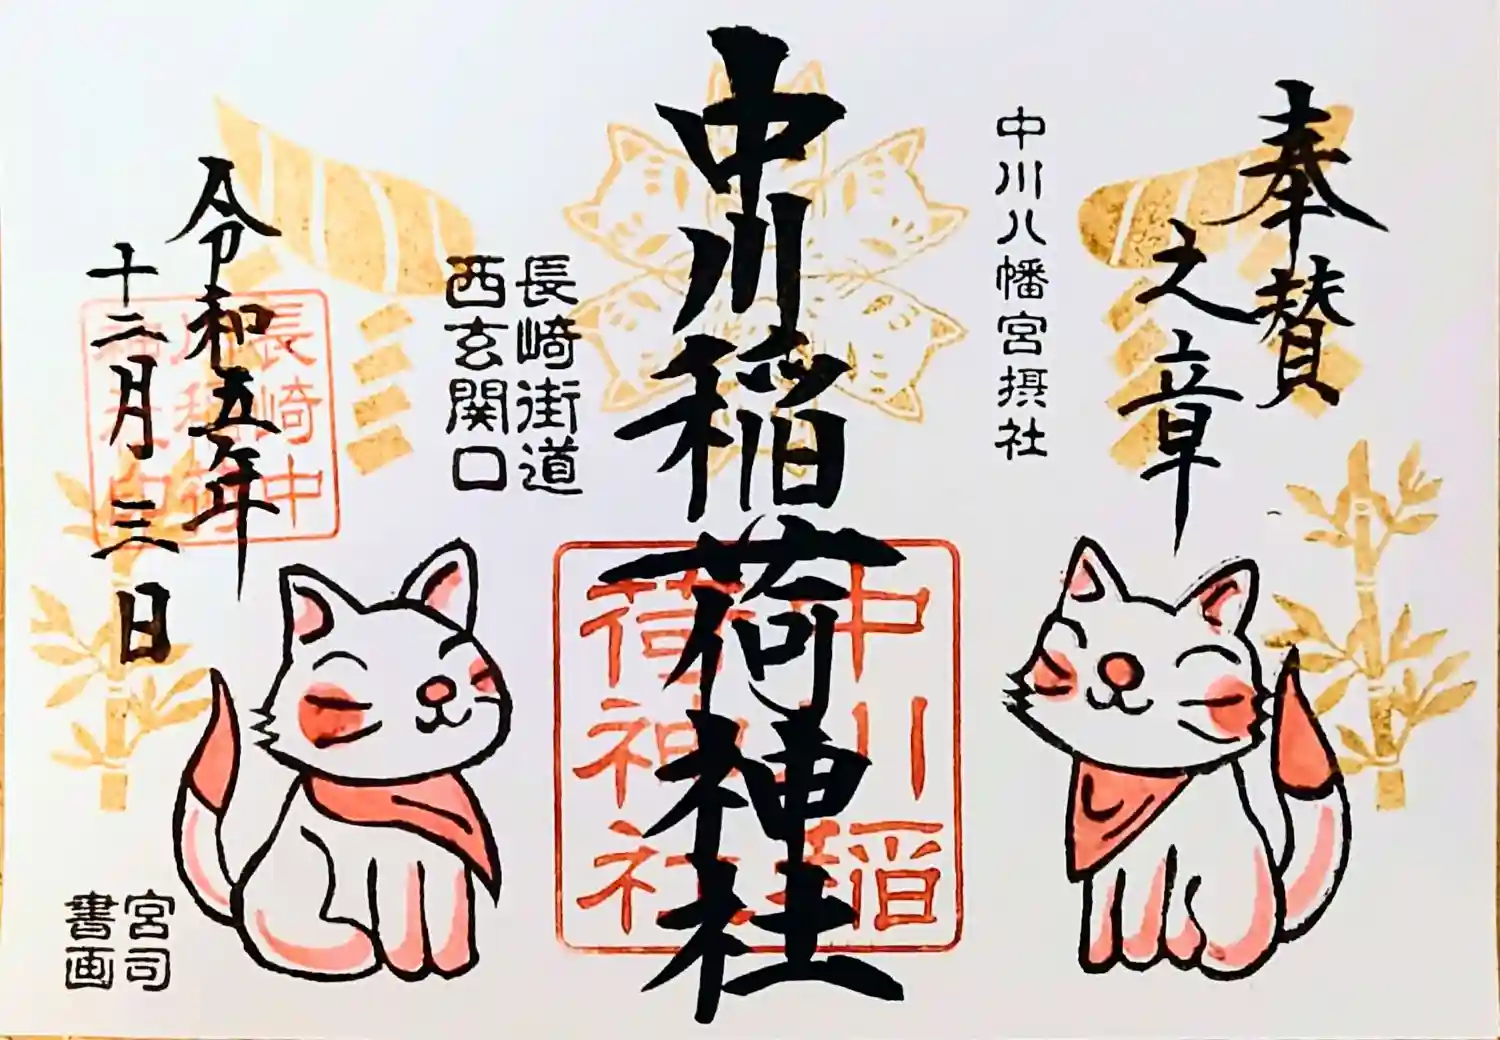 奉賛
之章
中川八幡宮摂社
中川稲荷神社
中川稲
荷神社
長崎街道
西玄関口
令和五年
十二月三日
長崎中
川稲荷
神社印
宮司
書画